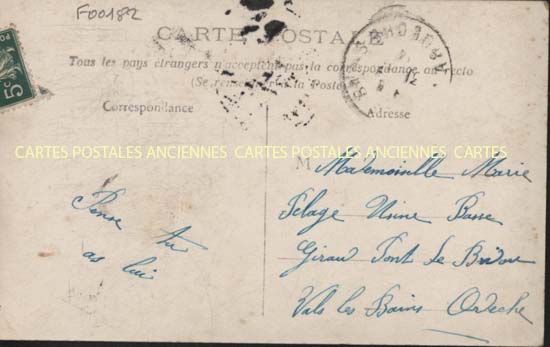 F00182
CARTE POSTALE
Tous les pays étrangers n'acceptent pas la correspondance au recto
(Se renseigner à la Poste)
Correspondance
Adresse
5c
CARTES POSTALES ANCIENNES CARTES POSTALES ANCIENNES CARTES
M Mademoiselle Marie
Pelage Usine Basse
Giraud Pont de
Vals les Bains Ardèche
Pense tu
as lui